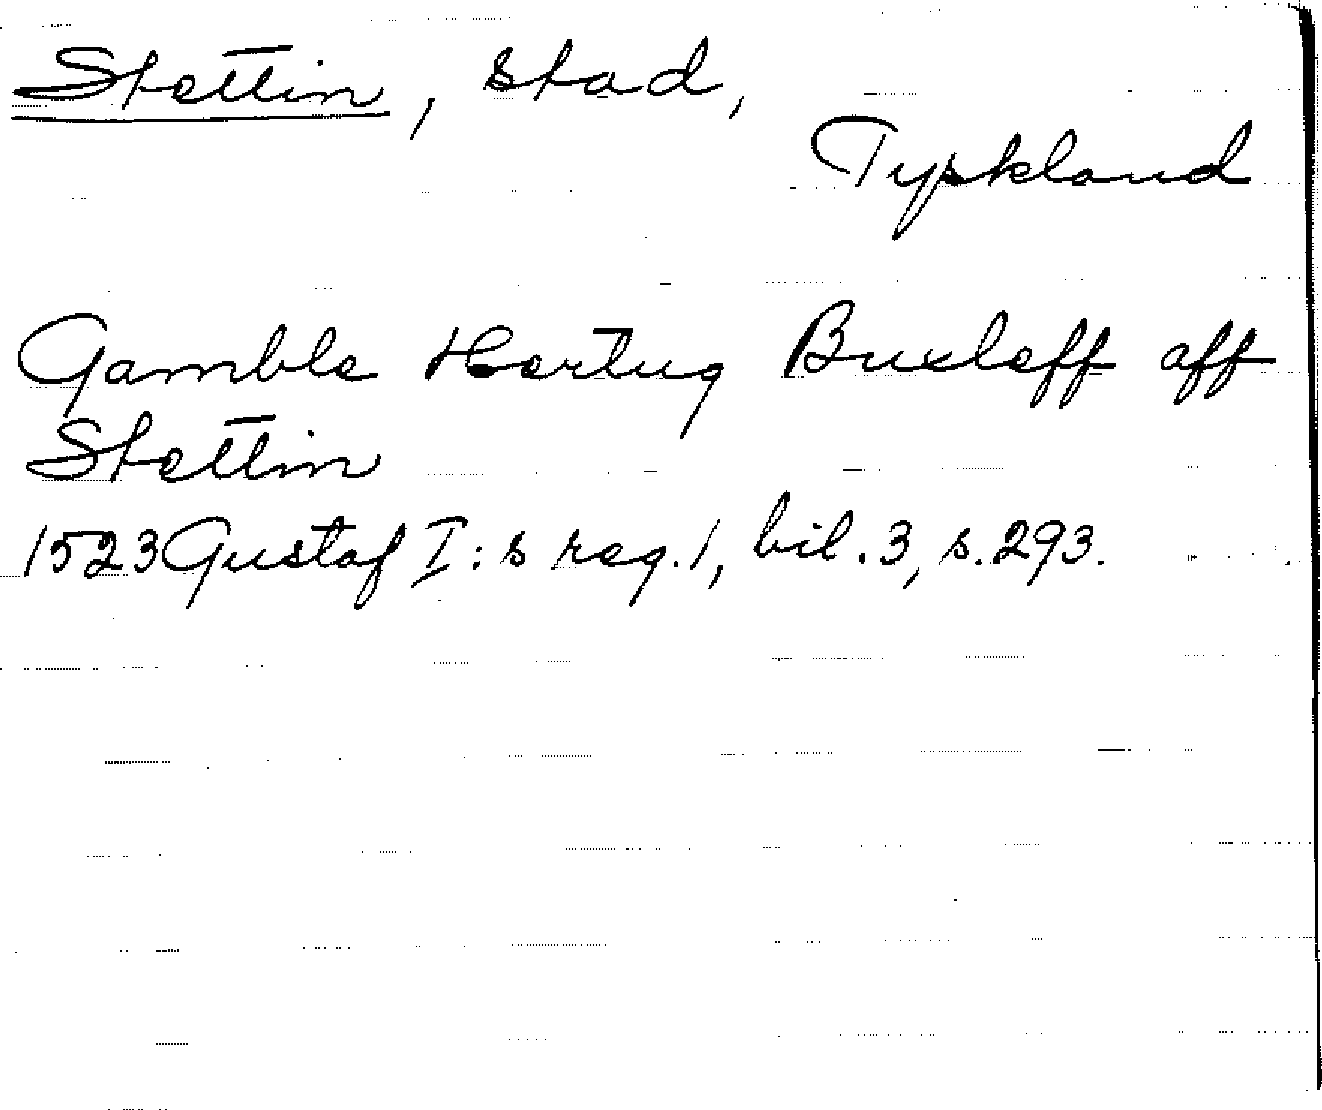 Stettin, stad,
Tyskland
Gamble Hertug Buxleff aff
Stettin
1523 Gustaf I:s reg. 1, bil. 3, s. 293.